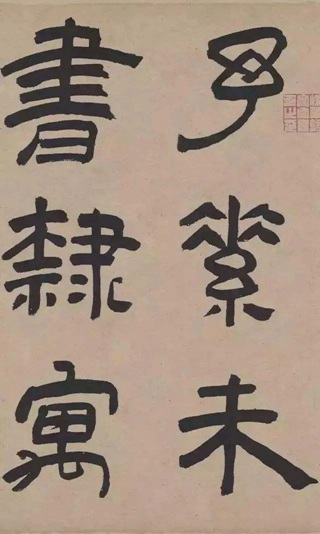 予素未
書隸寓